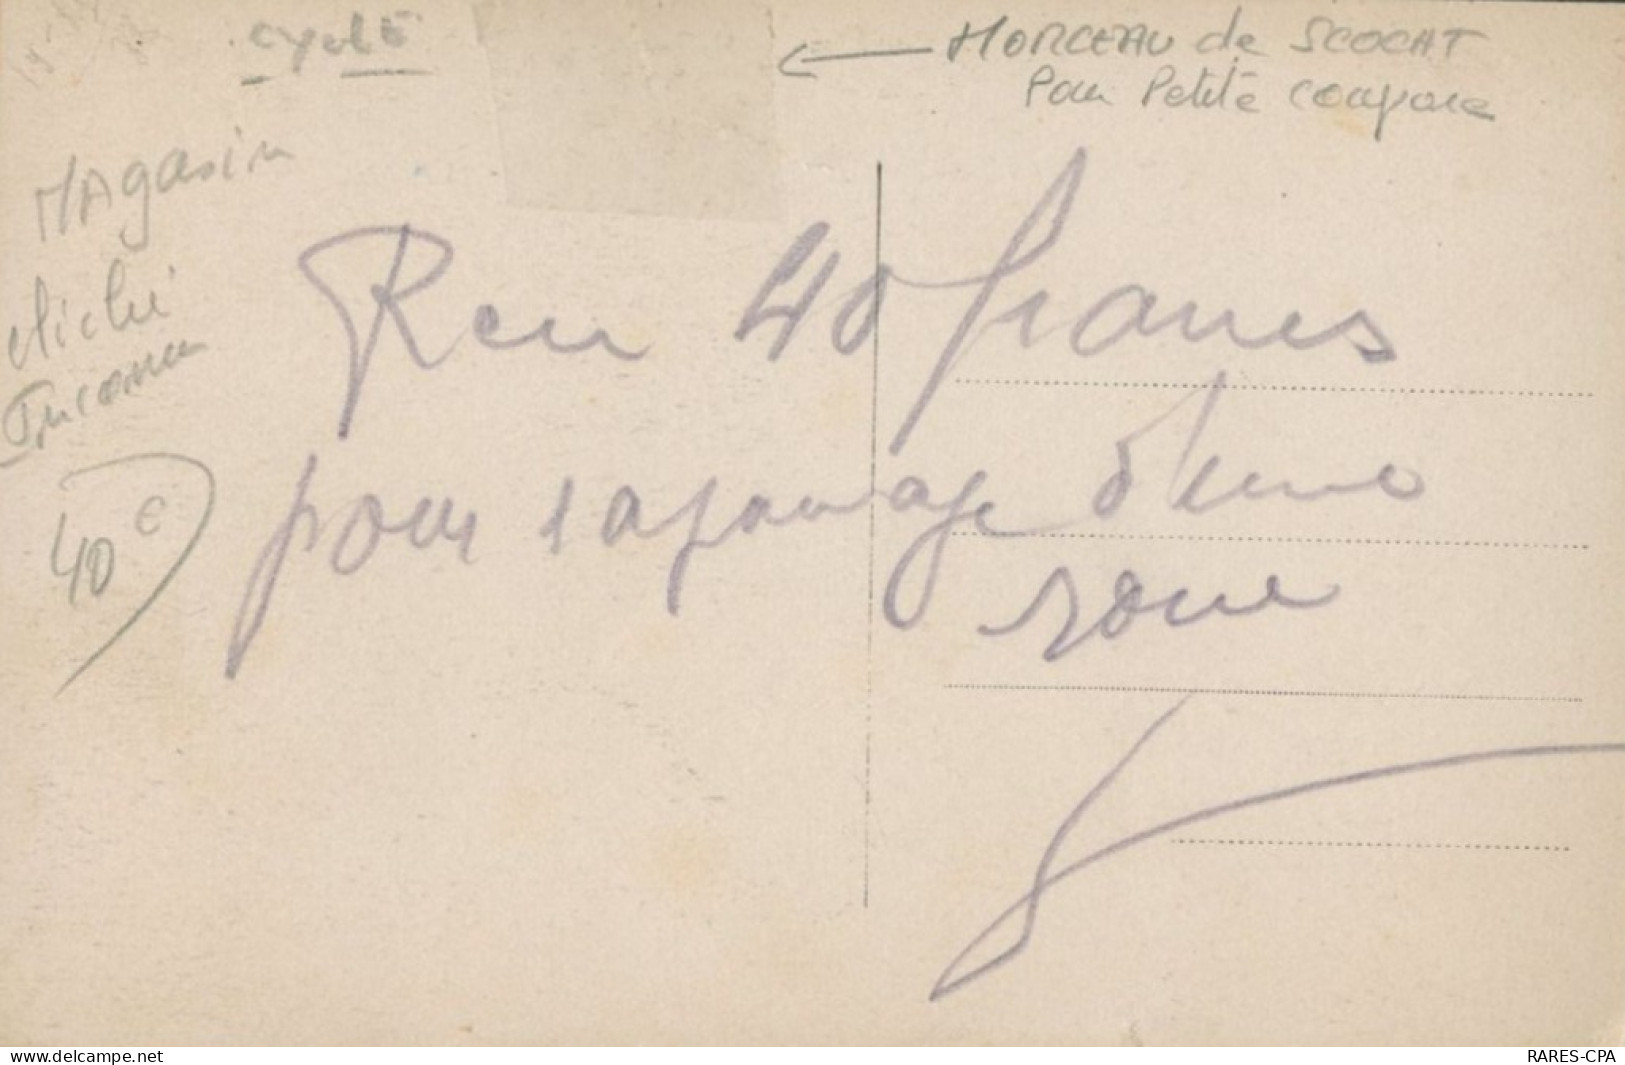 cycle
MORCEAU de SCOCHT
Pour Petite coupure
MAgasin
cliché
Inconnu
40 €
Reçu 40 francs
pour 1 aparage d'une
roue
www.delcampe.net
RARES-CPA